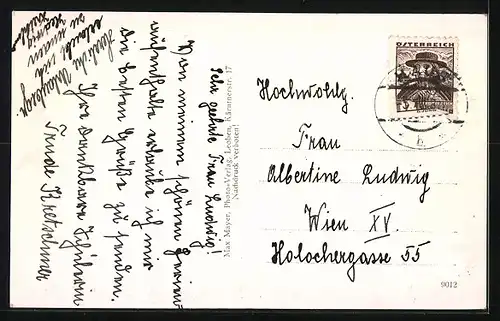 Sehr geehrte Frau Ludwig!
Von meinem schönen Ferien-
aufenthalte erlaube ich mir
die besten Grüße zu senden.
Ihre dankbare Schülerin
Trude Kretschmer
Max Mayer, Photo-Verlag, Leoben, Kärntnerstr. 17
Nachdruck verboten!
ÖSTERREICH
Hochwohlg.
Frau
Albertine Ludwig
Wien XV.
Holochergasse 55
9012